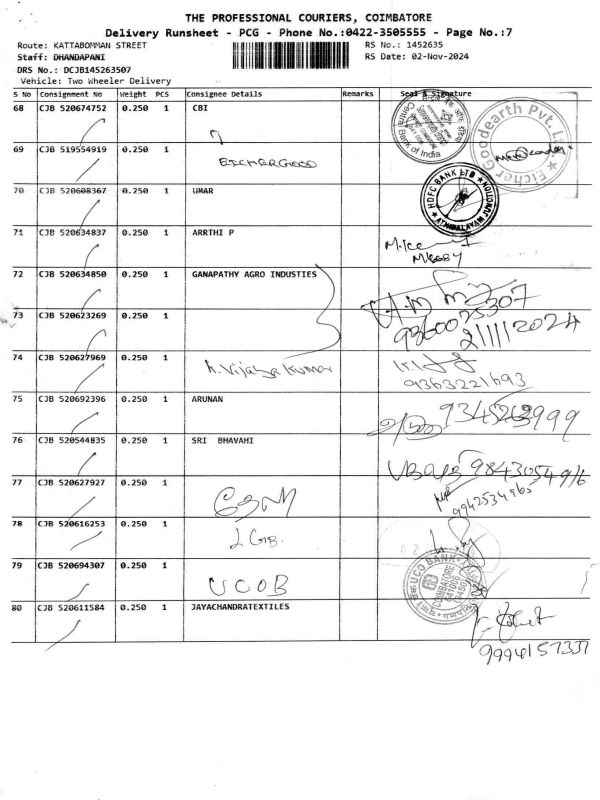 THE PROFESSIONAL COURIERS, COIMBATORE
Delivery Runsheet - PCG - Phone No.:0422-3505555 - Page No.:7
Route: KATTABOMMAN STREET RS No.: 1452635
Staff: DHANDAPANI RS Date: 02-Nov-2024
DRS No.: DCJB145263507
Vehicle: Two Wheeler Delivery
S No Consignment No Weight PCS Consignee Details Remarks Seal & Signature
68 CJB 520674752 0.250 1 CBI
Central Bank of India
Eicher Goodearth Pvt. Ltd.
69 CJB 519554919 0.250 1 EICHERGOOD
70 CJB 520608367 0.250 1 UMAR
HDFC BANK LTD
ATHIPALAYAM JUNCTION
71 CJB 520634837 0.250 1 ARRTHI P
72 CJB 520634850 0.250 1 GANAPATHY AGRO INDUSTIES
73 CJB 520623269 0.250 1
9360025307
2/11/2024
74 CJB 520627969 0.250 1 A. Vijaya Kumar
9363221693
75 CJB 520692396 0.250 1 ARUNAN
76 CJB 520544835 0.250 1 SRI BHAVAHI
9843054916
77 CJB 520627927 0.250 1
9942534965
78 CJB 520616253 0.250 1
79 CJB 520694307 0.250 1 UCOB
UCO BANK
COIMBATORE
80 CJB 520611584 0.250 1 JAYACHANDRATEXTILES
9994157337